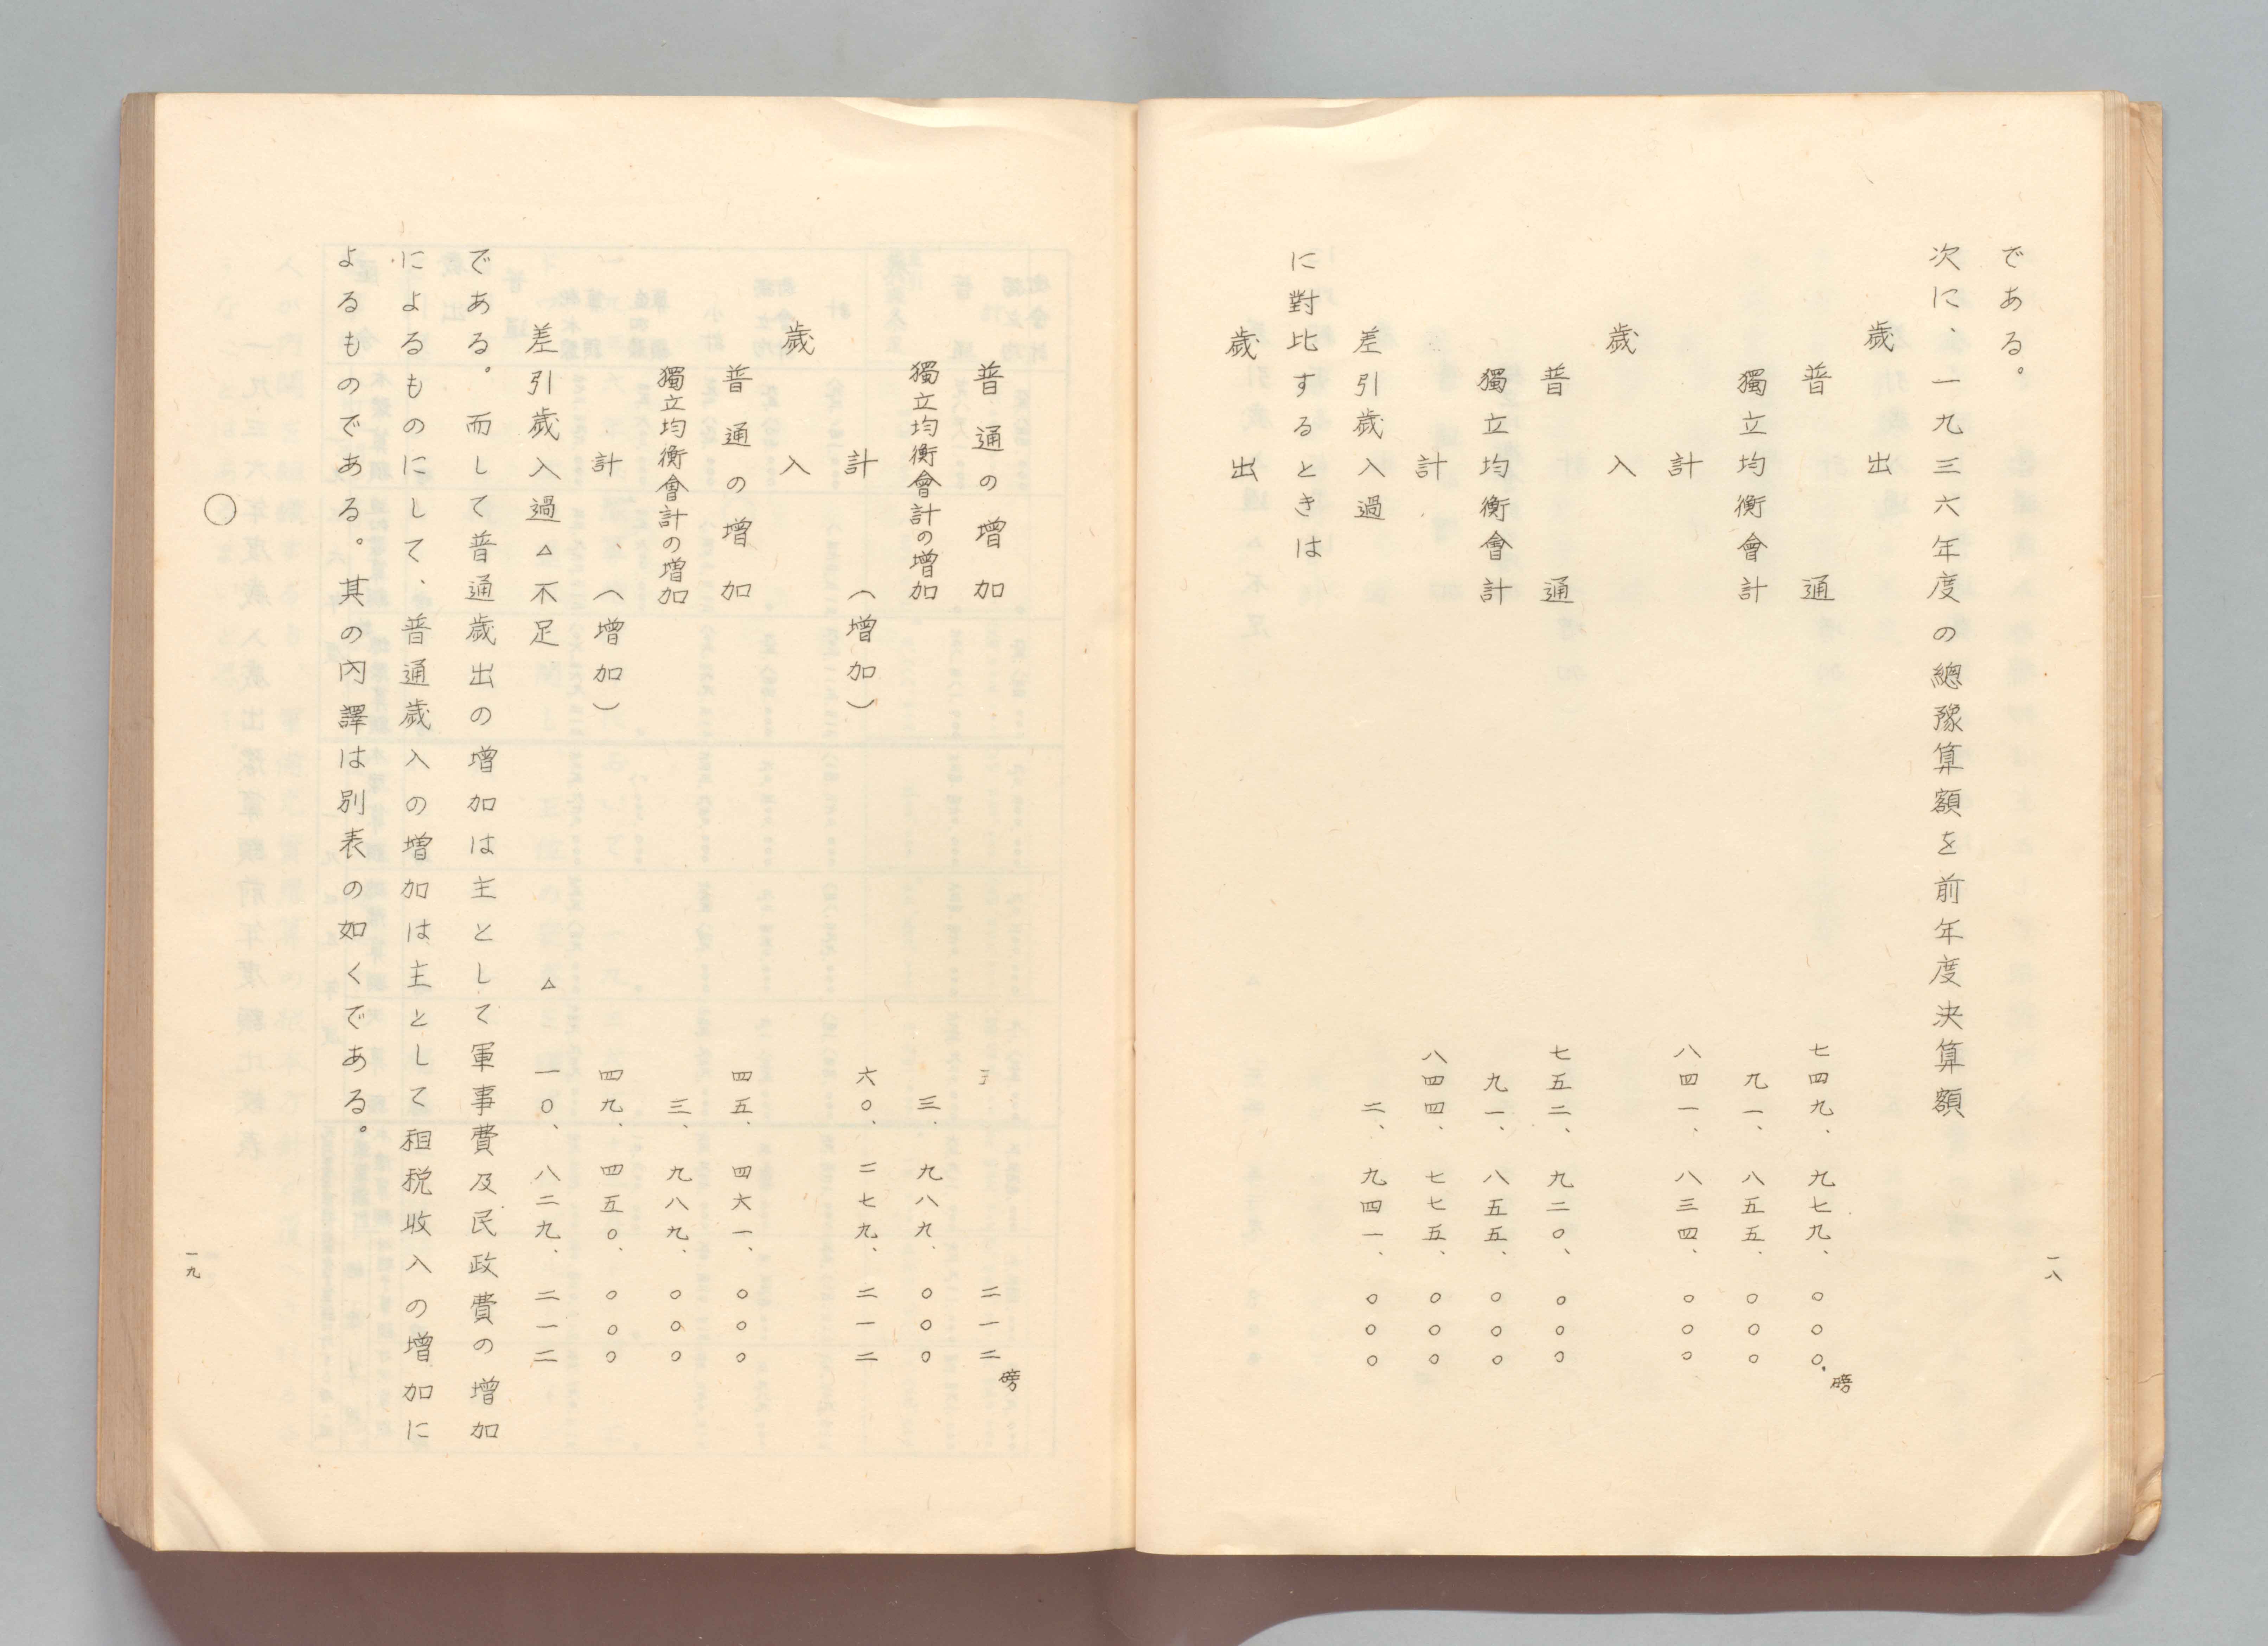 である。
次に、一九三六年度の總豫算額を前年度決算額
歲出
普通 七四九、九七九、〇〇〇磅
獨立均衡會計 九一、八五五、〇〇〇
計 八四一、八三四、〇〇〇
歲入
普通 七五二、九二〇、〇〇〇
獨立均衡會計 九一、八五五、〇〇〇
計 八四四、七七五、〇〇〇
差引歲入過 二、九四一、〇〇〇
に對比するときは
歲出
一八
普通の增加 二一二磅
獨立均衡會計の增加 三、九八九、〇〇〇
計(增加) 六〇、二七九、二一二
歲入
普通の增加 四五、四六一、〇〇〇
獨立均衡會計の增加 三、九八九、〇〇〇
計(增加) 四九、四五〇、〇〇〇
差引歲入過△不足 △一〇、八二九、二一二
である。而して普通歲出の增加は主として軍事費及民政費の增加
によるものにして、普通歲入の增加は主として租稅收入の增加に
よるものである。其の內譯は別表の如くである。
〇
一九